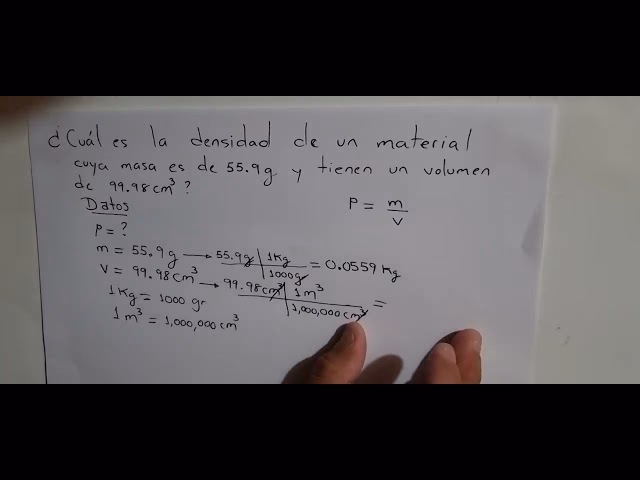 ¿Cuál es la densidad de un material
cuya masa es de 55.9g y tienen un volumen
de 99.98 cm³ ?
Datos
P = m / v
P = ?
m = 55.9 g → 55.9g | 1Kg / 1000g = 0.0559 Kg
V = 99.98 cm³ → 99.98 cm³ | 1 m³ / 1,000,000 cm³ =
1 Kg = 1000 gr
1 m³ = 1,000,000 cm³